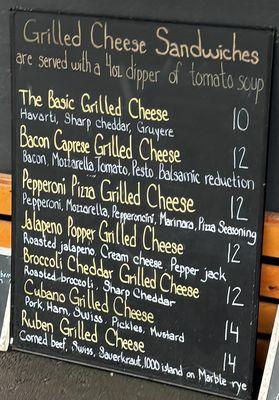 Grilled Cheese Sandwiches
are served with a 4oz dipper of tomato soup
The Basic Grilled Cheese 10
Havarti, Sharp cheddar, Gruyere
Bacon Caprese Grilled Cheese 12
Bacon, Mozzarella Tomato, Pesto, Balsamic reduction
Pepperoni Pizza Grilled Cheese 12
Pepperoni, Mozzarella, Pepperoncini, Marinara, Pizza Seasoning
Jalapeno Popper Grilled Cheese 12
Roasted jalapeno, Cream cheese, Pepper jack
Broccoli Cheddar Grilled Cheese 12
Roasted broccoli, Sharp Cheddar
Cubano Grilled Cheese 14
Pork, Ham, Swiss, Pickles, Mustard
Ruben Grilled Cheese 14
Corned beef, Swiss, Sauerkraut, 1000 island on Marble rye